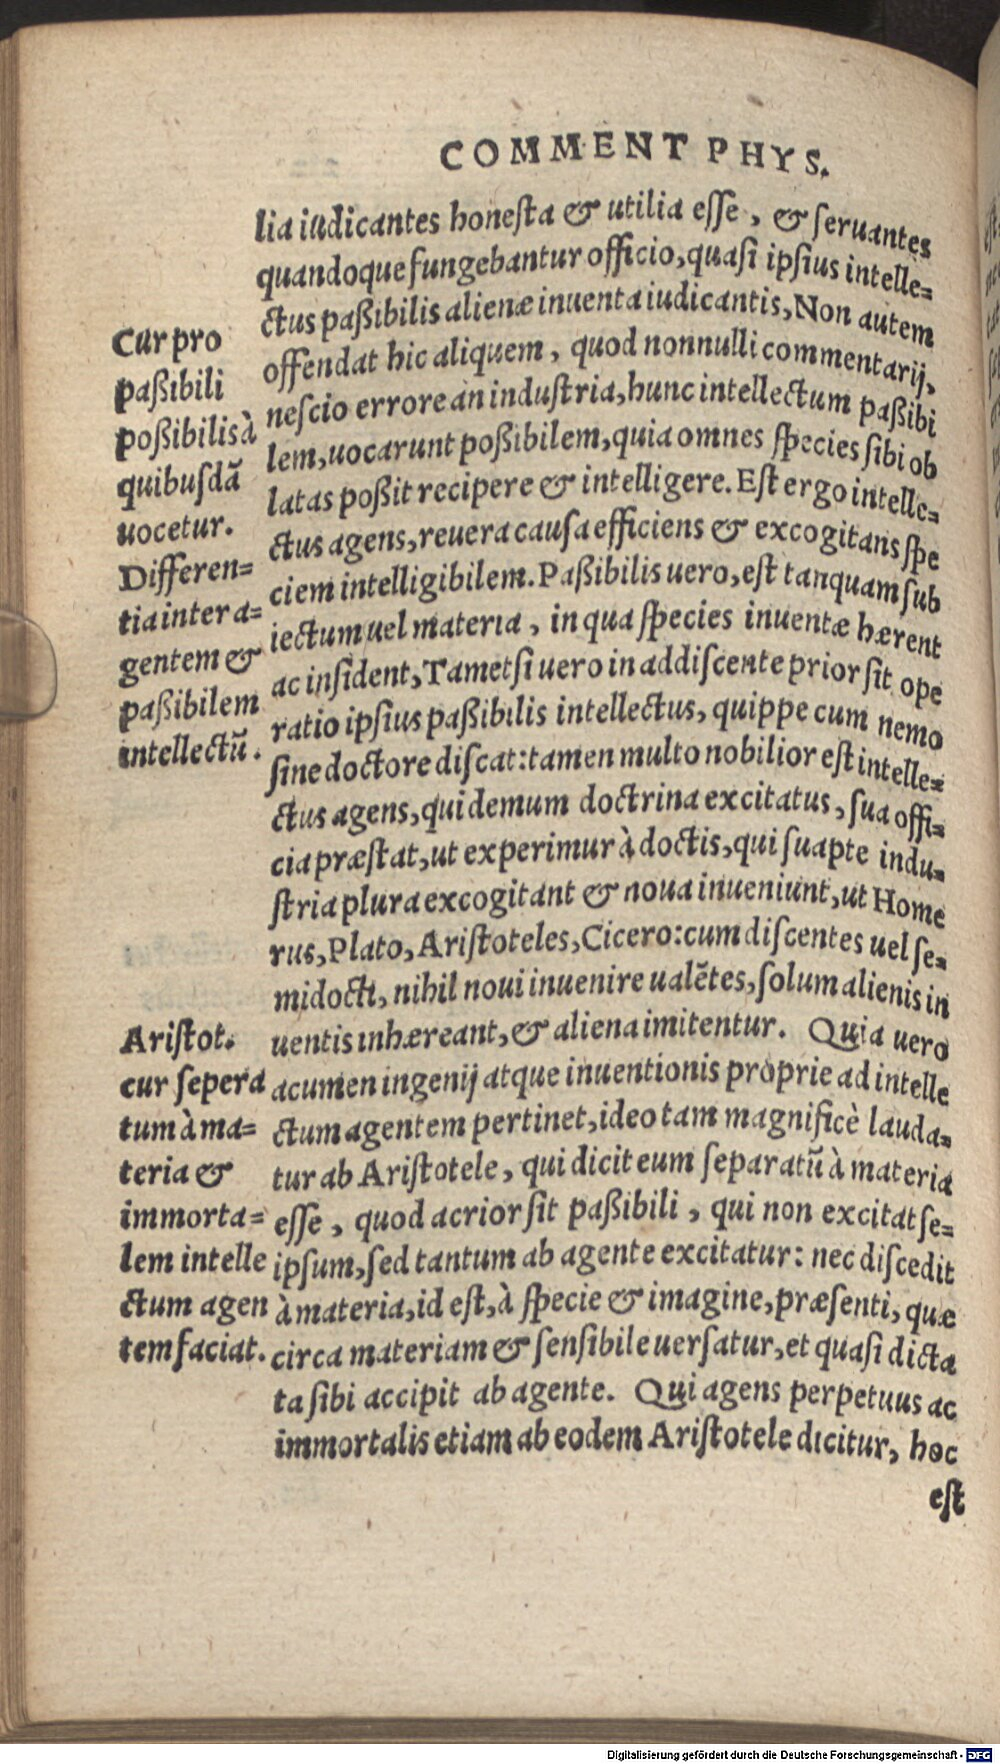 COMMENT PHYS.
lia iudicantes honesta & utilia esse, & seruantes
quandoque fungebantur officio, quasi ipsius intelle=
ctus paßibilis alienæ inuenta iudicantis, Non autem
offendat hic aliquem, quod nonnulli commentarij,
nescio errore an industria, hunc intellectum paßibi
lem, uocarunt poßibilem, quia omnes species sibi ob
latas poßit recipere & intelligere. Est ergo intelle=
ctus agens, reuera causa efficiens & excogitans spe
ciem intelligibilem. Paßibilis uero, est tanquam sub
iectum uel materia, in qua species inuentæ hærent
ac insident, Tametsi uero in addiscente prior sit ope
ratio ipsius paßibilis intellectus, quippe cum nemo
sine doctore discat: tamen multo nobilior est intelle=
ctus agens, qui demum doctrina excitatus, sua offi=
cia præstat, ut experimur à doctis, qui suapte indu=
stria plura excogitant & noua inueniunt, ut Home
rus, Plato, Aristoteles, Cicero: cum discentes uel se=
midocti, nihil noui inuenire ualẽtes, solum alienis in
uentis inhæreant, & aliena imitentur. Quia uero
acumen ingenij atque inuentionis proprie ad intelle
ctum agentem pertinet, ideo tam magnificè lauda=
tur ab Aristotele, qui dicit eum separatũ à materia
esse, quod acrior sit paßibili, qui non excitat se=
ipsum, sed tantum ab agente excitatur: nec discedit
à materia, id est, à specie & imagine, præsenti, quæ
circa materiam & sensibile uersatur, et quasi dicta
ta sibi accipit ab agente. Qui agens perpetuus ac
immortalis etiam ab eodem Aristotele dicitur, hoc
est
Cur pro
paßibili
poßibilis à
quibusdã
uocetur.
Differen=
tia inter a=
gentem &
paßibilem
intellectũ.
Aristot.
cur sepera
tum à ma=
teria &
immorta=
lem intelle
ctum agen
tem faciat.
Digitalisierung gefördert durch die Deutsche Forschungsgemeinschaft - DFG